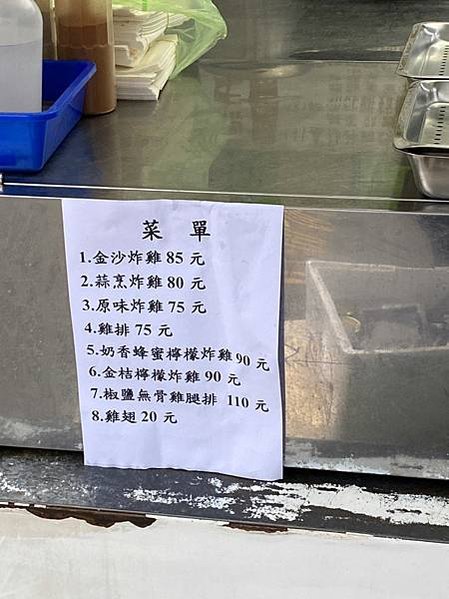 菜 單
1.金沙炸雞 85 元
2.蒜烹炸雞 80 元
3.原味炸雞 75 元
4.雞排 75 元
5.奶香蜂蜜檸檬炸雞 90 元
6.金桔檸檬炸雞 90 元
7.椒鹽無骨雞腿排 110 元
8.雞翅 20 元